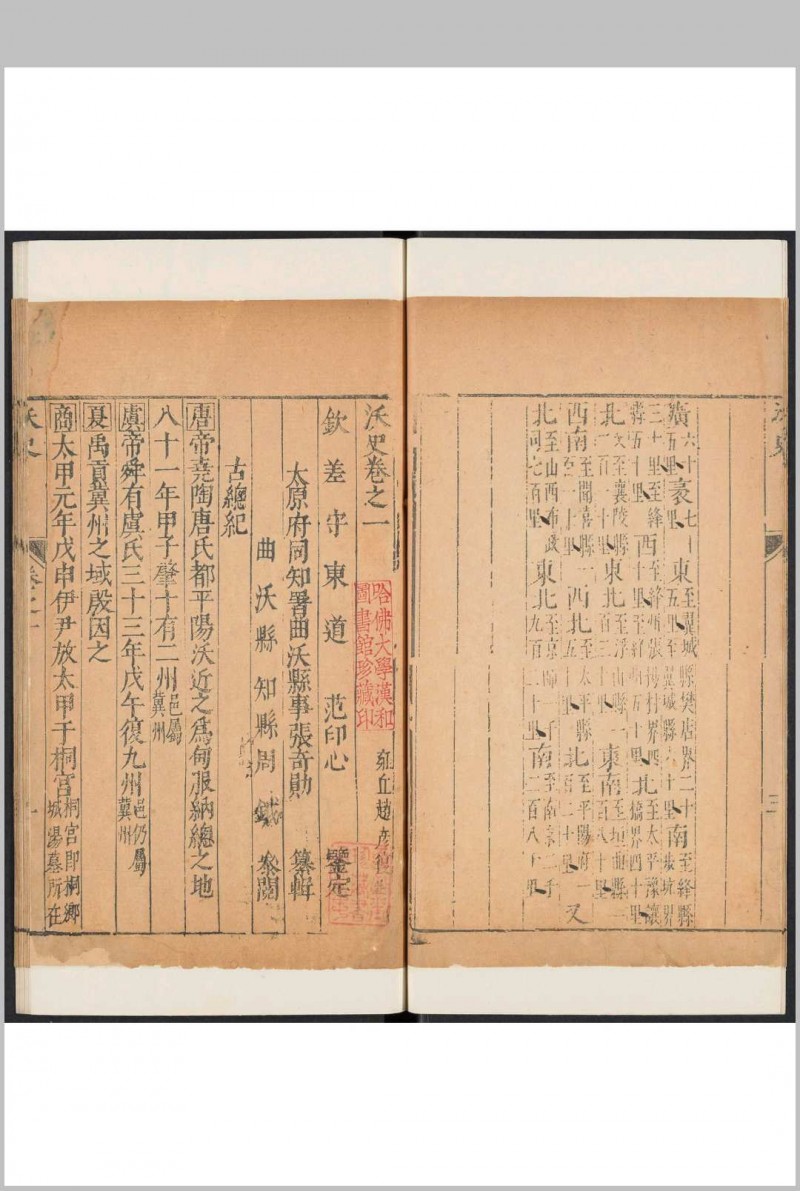 沃史
廣六十五里袤七十三里
東至翼城縣樊店界二十五里至翼城縣六十里
南至絳縣坡坑界三十里至絳縣五十里
西至絳州張村界四十里至
北至太平界四十里
北至襄陵縣一百二十里
東北至浮山縣一百三十里
東南至垣曲縣二百八十里
西南至聞喜縣一百一十里
西北至太平縣五十里
北至平陽府一百二十里
又
北至山西布政司七百里
東北至京師二千九百二十里
南至南京二千二百八十里
三
沃史卷之一
雍丘趙彦復
欽差守東道范印心鑒定
太原府同知署曲沃縣事張奇勛纂輯
曲沃縣知縣周鉞叅閱
古總紀
唐帝堯陶唐氏都平陽沃近之爲甸服納總之地
八十一年甲子肇十有二州邑屬冀州
虞帝舜有虞氏三十三年戊午復九州邑仍屬冀州
夏禹貢冀州之域殷因之
商太甲元年戊申伊尹放太甲于桐宫桐宫即桐鄉城湯墓所在
沃史
卷之一
一
哈佛大學漢和圖書館珍藏印